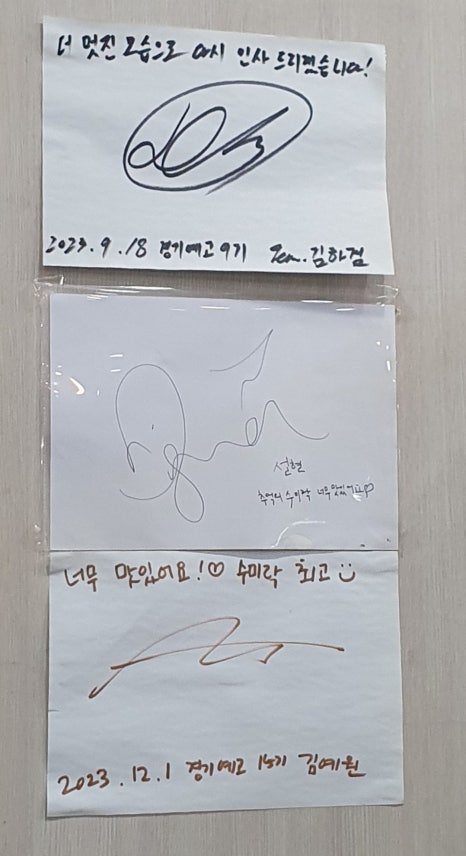 더 멋진 모습으로 다시 인사 드리겠습니다!
2023.9.18 경기예고 9기 Ten.김하겸
설현
추억의 수미락 너무 맛있어요♡
너무 맛있어요!♡ 수미락 최고
2023.12.1 경기예고 15기 김예원